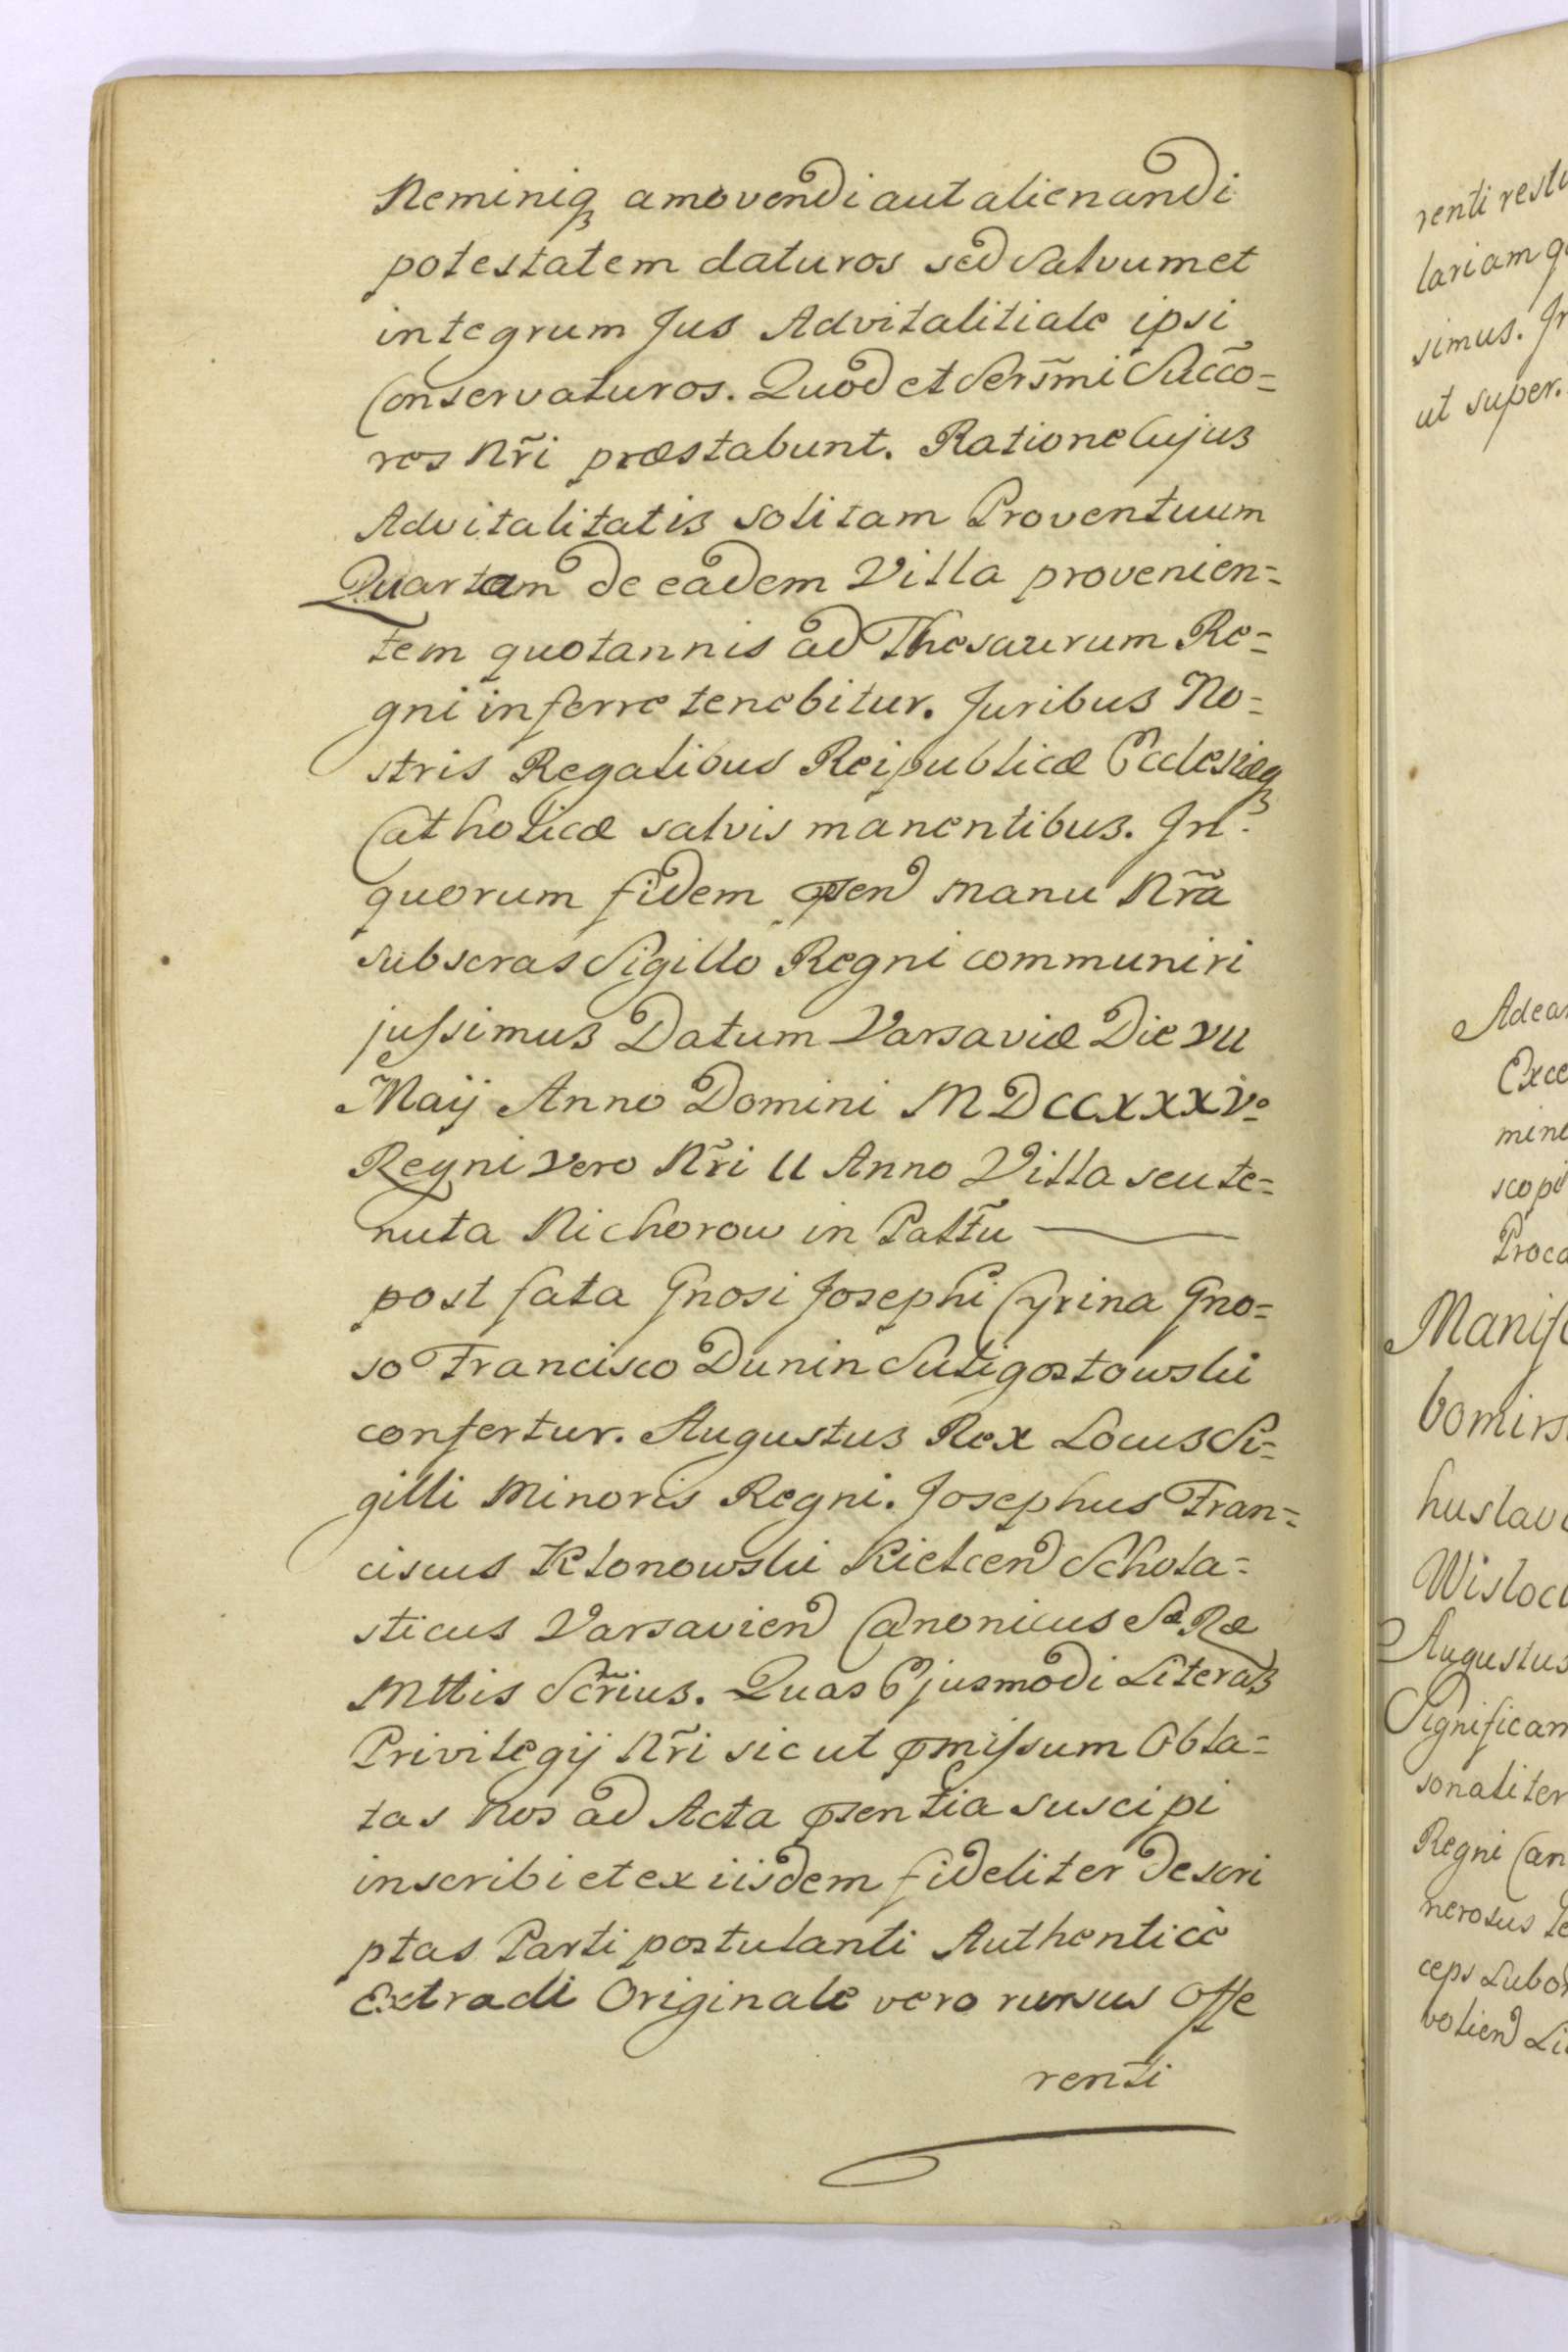 Neminiqꝫ amovendi aut alienandi
potestatem daturos sed Salvum et
integrum Jus Advitalitiale ipsi
Conservaturos. Quod et Serm̃mi Succ̃o=
res Nr̃i præstabunt. Ratione Cujus
Advitalitatis solitam Proventuum
Quartam de eadem Villa provenien=
tem quotannis ad Thesaurum Re=
gni inferre tenebitur. Juribus No=
stris Regalibus Reipublicæ Ecclesiæqꝫ
Catholicæ salvis manentibus. In
quorum fidem pñsen manu Nr̃a
subscras Sigillo Regni communiri
jussimus Datum Varsaviæ Die VII
Maij Anno Domini MDCCXXXVo
Regni vero Nr̃i II Anno Villa seu te=
nuta Nichorow in Paltt̃u
post fata Gnosi Josephi Cyrina Gno=
so Francisco Dunin Suligostowski
confertur. Augustus Rex Locus Si=
gilli Minoris Regni. Josephus Fran=
ciscus Klonowski Kielcen Schola=
sticus Varsavien Canonicus Sæ Ræ
Mttis Scr̃ius. Quas Ejusmodi Literas
Privilegij Nr̃i sicut pmissum Obla=
tas Nos ad Acta psentia suscipi
inscribi et ex iisdem fideliter descri
ptas Parti postulanti Authenticè
Extradi Originale vero rursus Offe
renti
renti
lariam
simus.
ut super.
Manife
bomirs
huslav
Wisloc
Augustus
Significam
sonaliter
Regni Can
nerosus
ceps Lubo
volien Li